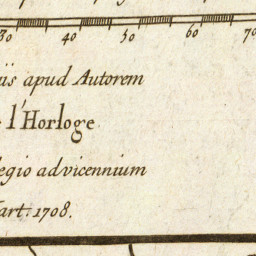 30 40 50 60 70
iis apud Autorem
l'Horloge
legio ad vicennium
art. 1708.